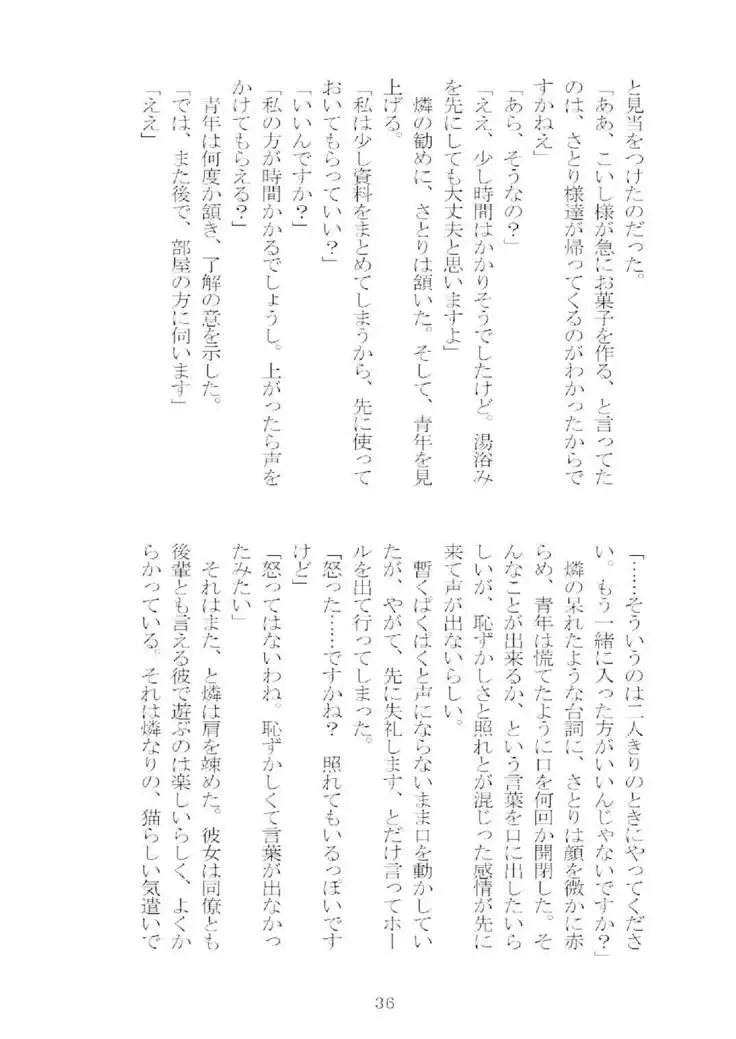 と見当をつけたのだった。
「ああ、こいし様が急にお菓子を作る、と言ってた
のは、さとり様達が帰ってくるのがわかったからで
すかねえ」
「あら、そうなの？」
「ええ、少し時間はかかりそうでしたけど。湯浴み
を先にしても大丈夫と思いますよ」
　燐の勧めに、さとりは頷いた。そして、青年を見
上げる。
「私は少し資料をまとめてしまうから、先に使って
おいてもらっていい？」
「いいんですか？」
「私の方が時間かかるでしょうし。上がったら声を
かけてもらえる？」
　青年は何度か頷き、了解の意を示した。
「では、また後で、部屋の方に伺います」
「ええ」
「……そういうのは二人きりのときにやってくださ
い。もう一緒に入った方がいいんじゃないですか？」
　燐の呆れたような台詞に、さとりは顔を微かに赤
らめ、青年は慌てたように口を何回か開閉した。そ
んなことが出来るか、という言葉を口に出したいら
しいが、恥ずかしさと照れとが混じった感情が先に
来て声が出ないらしい。
　暫くぱくぱくと声にならないまま口を動かしてい
たが、やがて、先に失礼します、とだけ言ってホー
ルを出て行ってしまった。
「怒った……ですかね？　照れてもいるっぽいです
けど」
「怒ってはないわね。恥ずかしくて言葉が出なかっ
たみたい」
　それはまた、と燐は肩を竦めた。彼女は同僚とも
後輩とも言える彼で遊ぶのは楽しいらしく、よくか
らかっている。それは燐なりの、猫らしい気遣いで
36